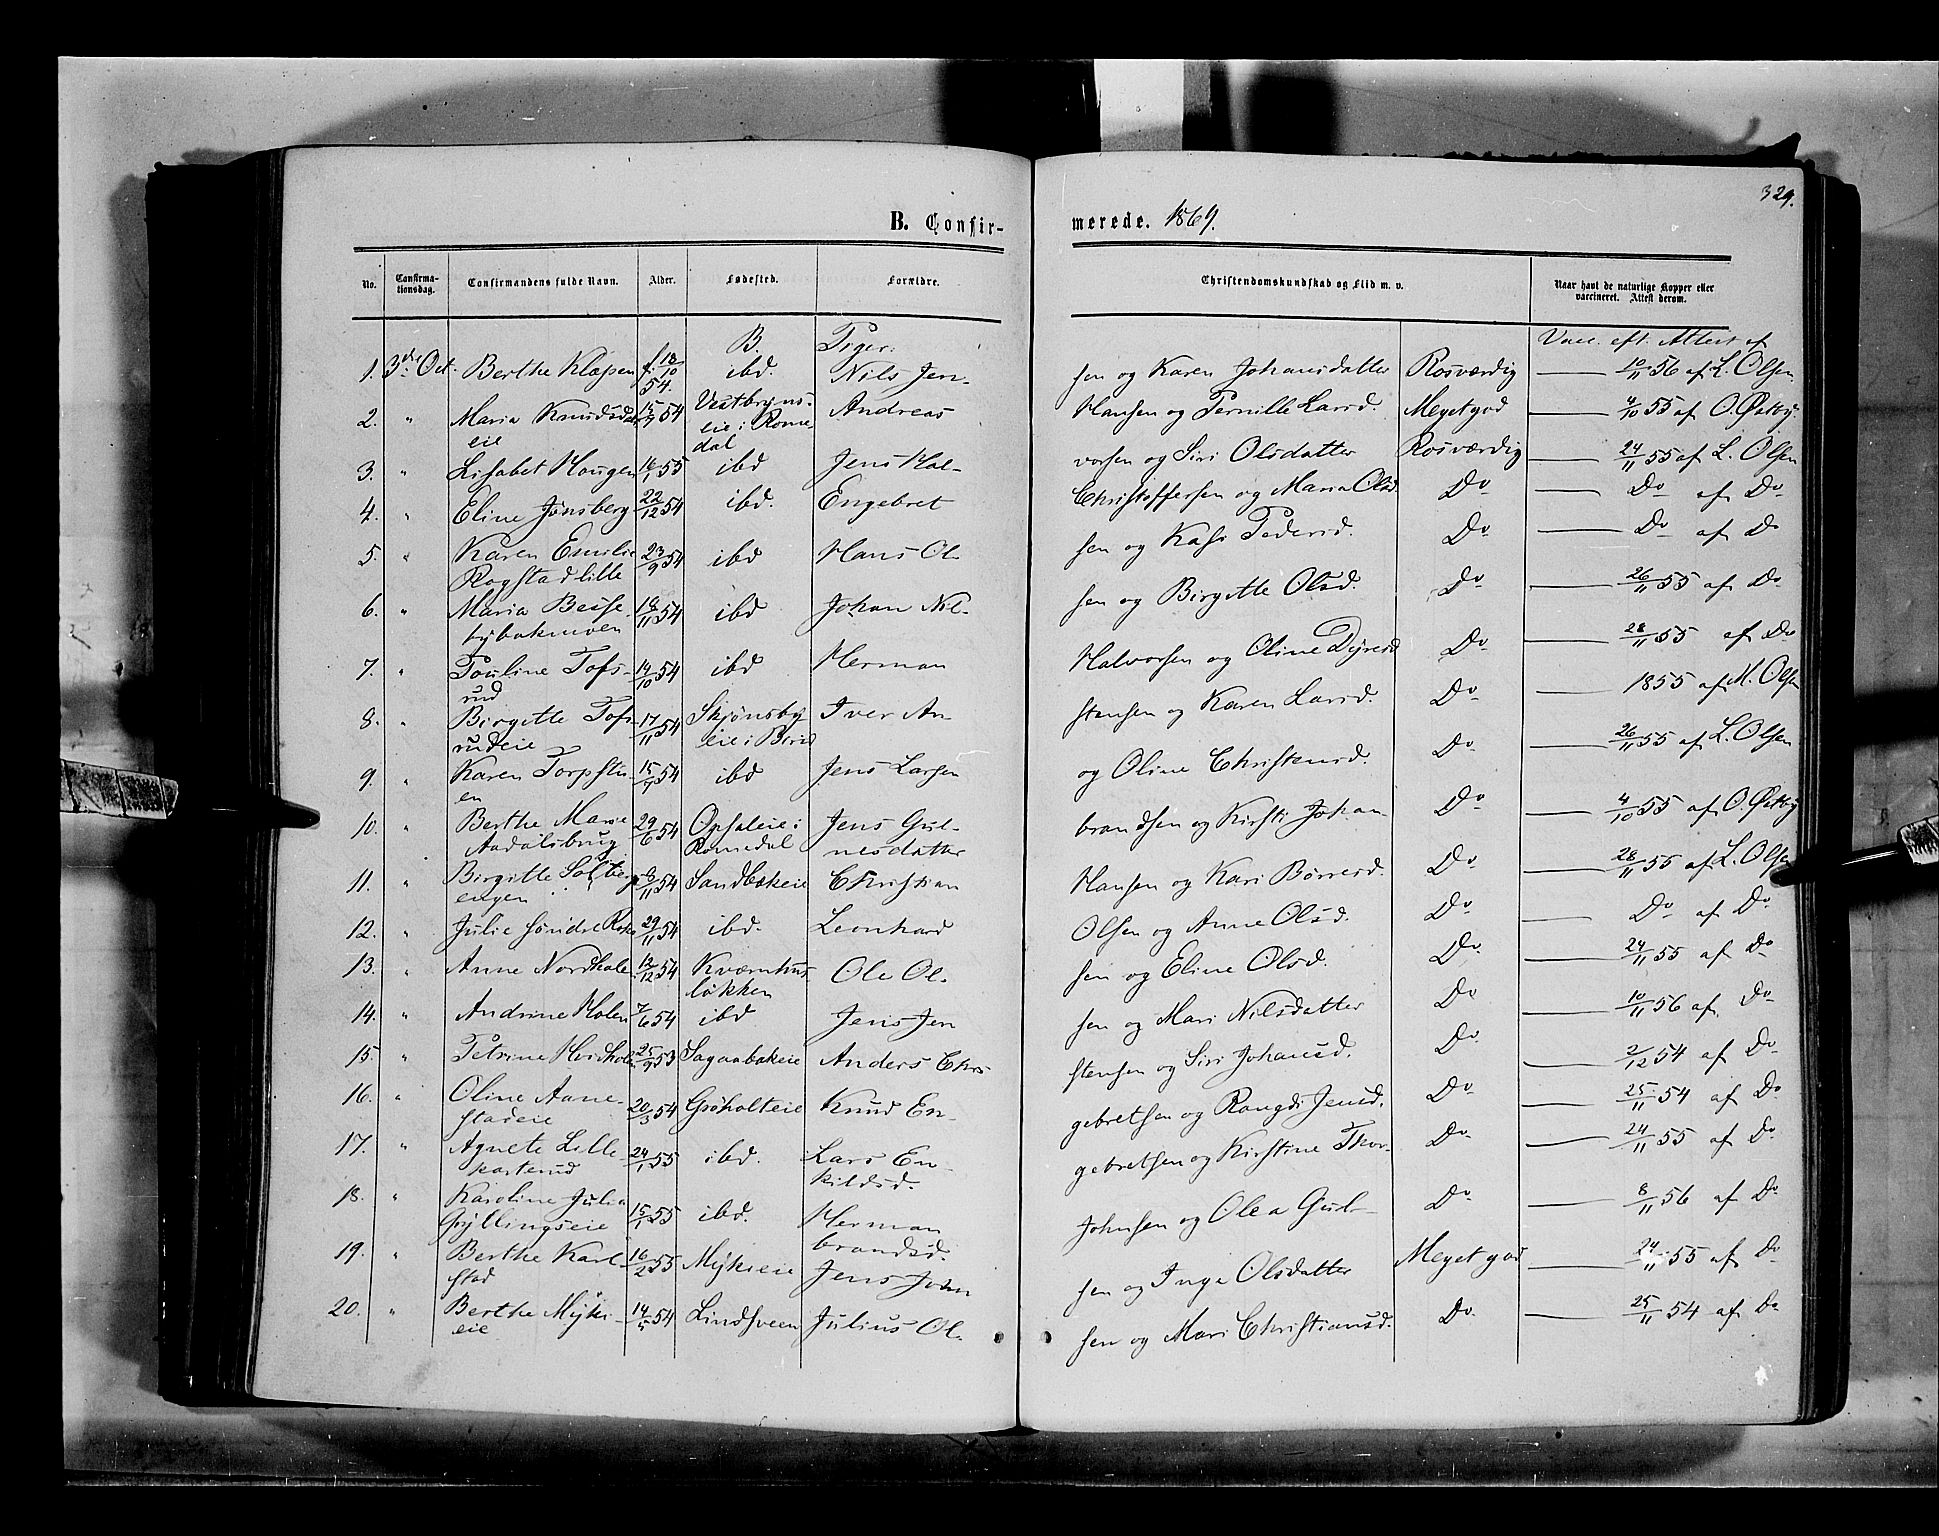 329.
B. Confir-
merede. 1869.
No. Confirma-tionsdag. Confirmandens fulde Navn. Alder. Fødested. Forældre. Christendomskundskab og Flid m. v. Naar havt de naturlige Kopper eller vaccineret. Attest derom.
B. Piger: Vacc. eft. Attest af
1. 3die Oct. Berthe Klæpen f. 18/10 54. ibd. Nils Jen- sen og Karen Johansdatter Rosværdig — 10/11 56 af L. Olsen
2. " Maria Knudsdtr eie 15/7 54 Vestbyens- eie i Rome dal Andreas Hansen og Pernille Larsd. Meget god — 4/10 55 af O. Østby.
3. " Lisabet Haugen 16/1 55 ibd Jens Hal- vorsen og Siri Olsdatter Rosværdig — 24/11 55 af L. Olsen
4. " Eline Jønsberg 22/12 54 ibd. Engebret Christoffersen og Maria Olsd. Do — Do af Do
5. " Karen Emilie Rogstad lille 23/9 54 ibd Hans Ol- sen og Kasi Pedersd. Do — Do af Do
6. " Maria 18/11 54 ibd Johan Nil- sen og Birgitte Olsd. Do — 26/11 55 af Do
7. " Pouline Tofs- rud 14/10 54 ibd Herman Halvorsen og Oline Dyresd Do — 28/11 55 af Do
8. " Birgitte Tofs- rudeie 17/11 54 Skjønsby eie i Birid Iver An- stensen og Karen Larsd. Do — 1855 af M. Olsen
9. " Karen Torpstu- en 15/9 54 ibd Jens Larsen og Oline Christensd. Do — 26/11 55 af L. Olsen
10. " Berthe Marie Aadalsbrug 29/6 54 Opsaleie i Romedal Jens Gul- brandsen og Kirsti Johan- nesdatter Do — 4/10 55 af O. Østby
11. " Birgitte Solberg engen 8/11 54 Sandbakeie Christian Hansen og Kari Børresd. Do — 28/11 55 af L. Olsen
12. " Julie søndre Roko 29/11 54 ibd. Leonhard Olsen og Anne Olsd. Do — Do af Do
13. " Anne Nordhole 12/12 54 Kværnhus- løkken Ole Ol- sen og Eline Olsd. Do — 24/11 55 af Do
14. " Andrine Holen 7/6 54 ibd Jens Jen sen og Mari Nilsdatter Do — 10/11 56 af Do
15. " Petrine 25/9 53 Sagaabakeie Anders Chri stensen og Siri Johansd. Do — 2/12 54 af Do
16. " Oline Aane- stadeie 20/3 54 Grøholteie Knud En- gebretsen og Rangdi Jensd. Do — 25/11 54 af Do
17. " Agnete Lille- karterud 24/1 55 ibd. Lars En- gebretsen og Kirstine Thor- kildsd. Do — 24/11 55 af Do
18. " Karoline Julia Gyllingseie 15/1 55 ibd. Herman Johnsen og Olea Gul- brandsd. Do — 8/11 56 af Do
19. " Berthe Karl- stad 16/2 55 Myhreie Jens John sen og Inge Olsdatter Meget god — 24/11 55 af Do
20. " Berthe Myhr- eie 14/5 54 Lindsveen Julius Ol- sen og Mari Christiansd. Do — 25/11 54 af Do